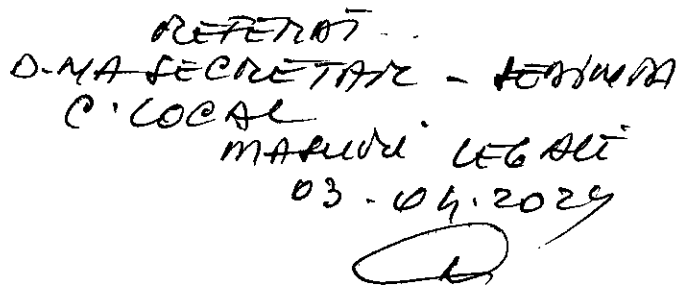 REFERAT
D-NA SECRETAR - SEDINTA
C. LOCAL
MASURI LEGALE
03.04.2024